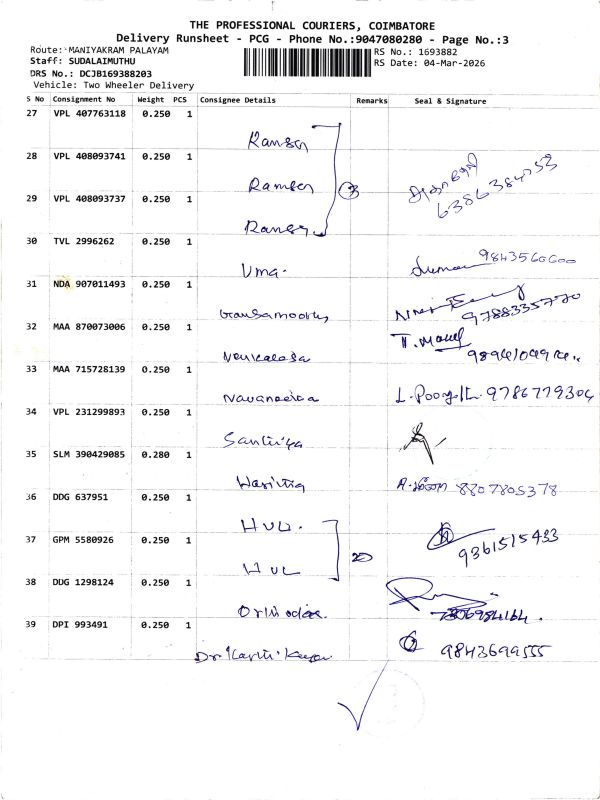 THE PROFESSIONAL COURIERS, COIMBATORE
Delivery Runsheet - PCG - Phone No.:9047080280 - Page No.:3
Route: MANIYAKRAM PALAYAM
RS No.: 1693882
Staff: SUDALAIMUTHU
RS Date: 04-Mar-2026
DRS No.: DCJB169388203
Vehicle: Two Wheeler Delivery
S No Consignment No Weight PCS Consignee Details Remarks Seal & Signature
27 VPL 407763118 0.250 1
28 VPL 408093741 0.250 1
Ramesh
3
6386384753
29 VPL 408093737 0.250 1
30 TVL 2996262 0.250 1
Uma.
9843560600
31 NDA 907011493 0.250 1
9788335770
32 MAA 870073006 0.250 1
33 MAA 715728139 0.250 1
Navaneetha
9786779304
34 VPL 231299893 0.250 1
Santhiya
35 SLM 390429085 0.280 1
8807805378
36 DDG 637951 0.250 1
HUL.
37 GPM 5580926 0.250 1
HUL
2
9361515433
38 DDG 1298124 0.250 1
39 DPI 993491 0.250 1
9843699555